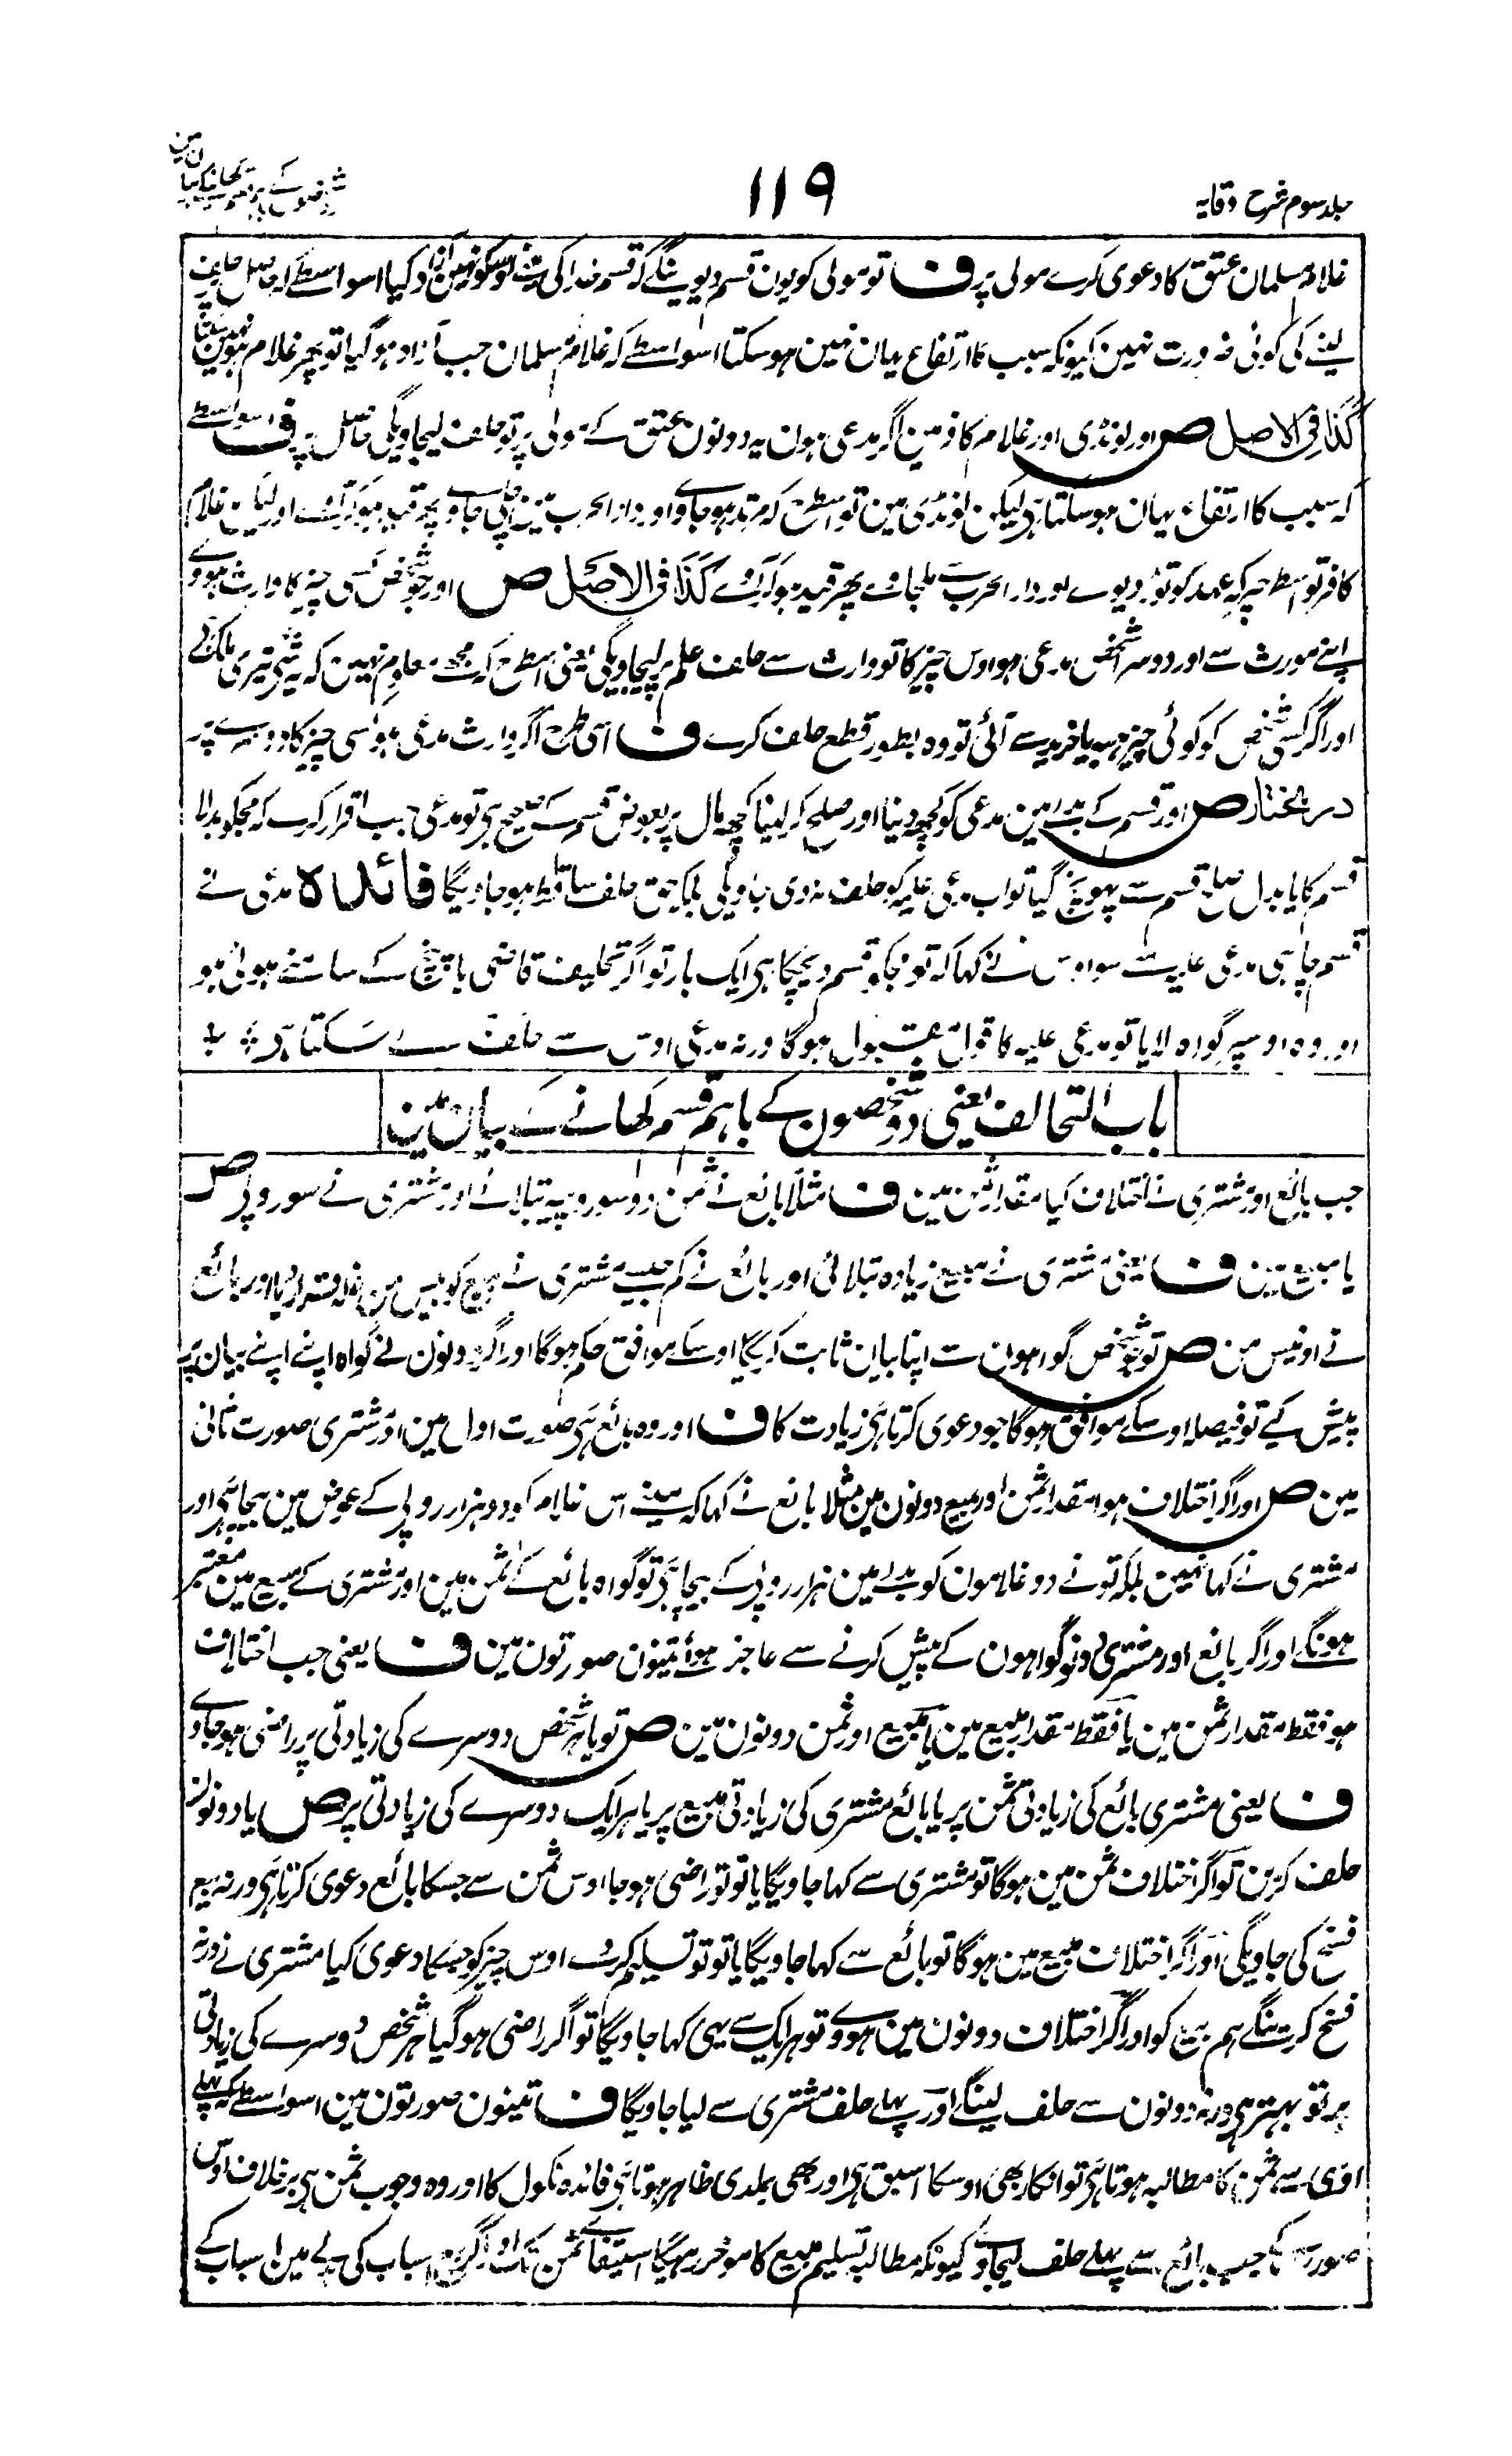 جلد سوم شرح وقایہ
۱۱۹
غلام مسلمان عتق کا دعوی کرے مولی پر ف تو مولی کو یون قسم دیوینگے کہ قسم خدا کی مینے اوسکو نہین آزاد کیا اسواسطے کہ حاصل پر حلف
لینے کی کوئی ضرورت نہین کیونکہ سبب کا ارتفاع یہان نہین ہوسکتا اسواسطے کہ غلام مسلمان جب آزاد ہوگیا تو پھر غلام نہین ہوسکتا
کذا فی الاصل ص اور لونڈی اور غلام کافر مین اگر مدعی ہون یہ دونون عتق کے مولی پر تو حلف لیجاویگی حاصل پر ف اسواسطے
کہ سبب کا ارتفاع یہان ہوسکتا ہی لیکن لونڈی مین تو اسطرح کہ مرتد ہوجاوے اور دارالحرب مین چلی جاوے پھر قید ہوکر آئے اور لیکن غلام
کافر تو اسطرح پر کہ عہد کو توڑ دیوے اور دارالحرب مین ملجاوے پھر قید ہوکر آوے کذا فی الاصل ص اور جو شخص کسی چیز کا وارث ہووے
اپنے مورث سے اور دوسرا شخص مدعی ہو اوس چیز کا تو وارث سے حلف علم پر لیجاویگی یعنی اسطرح کہ مجھے معلوم نہین کہ یہ شی تیری ملک ہے
اور اگر کسی شخص کو کوئی چیز ہبہ یا خرید سے آئی تو وہ بطور قطع حلف کرے ف اسی طرح اگر وارث مدعی ہو کسی چیز کا دوسرے پر
در المختار ص اور قسم کے بدلے مین مدعی کو کچھ دینا اور صلح کر لینا کچھ مال پر بعوض قسم کے صحیح ہی تو مدعی جب اقرار کرے کہ مجکو بدلا
قسم کا یا بدل صلح قسم سے پہونچ گیا تو اب مدعی علیہ کو حلف نہ دی جاویگی بلکہ حق حلف ساقط ہوجاویگا فائدہ مدعی نے
قسم چاہی مدعی علیہ سے سو اوس نے کہا کہ تو مجکو قسم دیچکا ہی ایک بار تو اگر تحلیف قاضی یا پنچ کے سامنے ہوئی ہو
اور وہ اوسپر گواہ لایا تو مدعی علیہ کا قول مقبول ہوگا ورنہ مدعی اوس سے حلف لے سکتا ہی
باب التحالف یعنی دو شخصون کے باہم قسم کھانے کے بیان مین
جب بائع اور مشتری نے اختلاف کیا مقدار ثمن مین ف مثلا بائع نے ثمن دو سو روپیہ بتلائے اور مشتری نے سو روپے ص
یا مبیع مین ف یعنی مشتری نے مبیع زیادہ بتلائی اور بائع نے کم جیسے مشتری نے مبیع کو بیس من غلہ قرار دیا اور بائع
نے اونیس من ص تو جو شخص گواہون سے اپنا بیان ثابت کریگا اوسکے موافق حکم ہوگا اور اگر دونون نے گواہ اپنے اپنے بیان پر
پیش کیے تو فیصلہ اوسکے موافق ہوگا جو دعوی کرتا ہی زیادت کا ف اور وہ بائع ہی صورت اول مین اور مشتری صورت ثانی
مین ص اور اگر اختلاف ہو مقدار ثمن اور مبیع دونون مین مثلا بائع نے کہا کہ مینے اس غلام کو دو ہزار روپے کے عوض مین بیچا ہی اور
مشتری نے کہا نہین بلکہ تونے دو غلامون کو بدلے مین ہزار روپے کے بیچا ہی تو گواہ بائع کے ثمن مین اور مشتری کے مبیع مین معتبر
ہونگے اور اگر بائع اور مشتری دونو گواہون کے پیش کرنے سے عاجز ہوئے تینون صورتون مین ف یعنی جب اختلاف
ہو فقط مقدار ثمن مین یا فقط مقدار مبیع مین یا مبیع اور ثمن دونون مین ص تو یا ہر شخص دوسرے کی زیادتی پر راضی ہوجاوے
ف یعنی مشتری بائع کی زیادتی ثمن پر یا بائع مشتری کی زیادتی مبیع پر یا ہر ایک دوسرے کی زیادتی پر ص یا دونون
حلف کرین تو اگر اختلاف ثمن مین ہوگا تو مشتری سے کہا جاویگا یا تو تو راضی ہوجا اوس ثمن سے جسکا بائع دعوی کرتا ہی ورنہ بیع
فسخ کی جاویگی اور اگر اختلاف مبیع مین ہوگا تو بائع سے کہا جاویگا یا تو تو تسلیم کر دے اوس چیز کو جسکا دعوی کیا مشتری نے ورنہ
فسخ کرینگے ہم بیع کو اور اگر اختلاف دونون مین ہووے تو ہر ایک سے یہی کہا جاویگا تو اگر راضی ہوگیا ہر شخص دوسرے کی زیادتی
پر تو بہتر ہی ورنہ دونون سے حلف لینگے اور پہلے حلف مشتری سے لیا جاویگا ف تینون صورتون مین اسواسطے کہ پہلے
اوسی سے ثمن کا مطالبہ ہوتا ہی تو انکار بھی اوسکا اسبق ہی اور بھی جلدی ظاہر ہوتا ہی فائدہ نکول کا اور وہ وجوب ثمن ہی برخلاف اوس
صورت کے جب بائع سے پہلے حلف لیجاوے کیونکہ مطالبہ تسلیم مبیع کا موخر رہیگا استیفائے ثمن تک اور اگر بیع اسباب کی بدلے مین اسباب کے